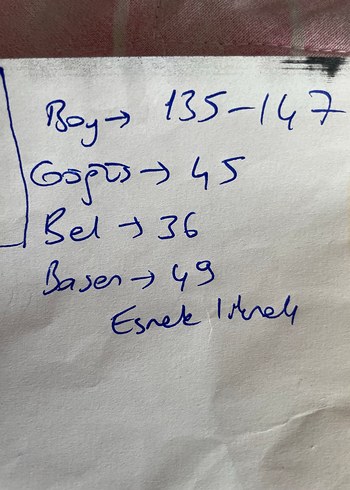 Boy → 135-147
Göğüs → 45
Bel → 36
Basen → 49
Esnek